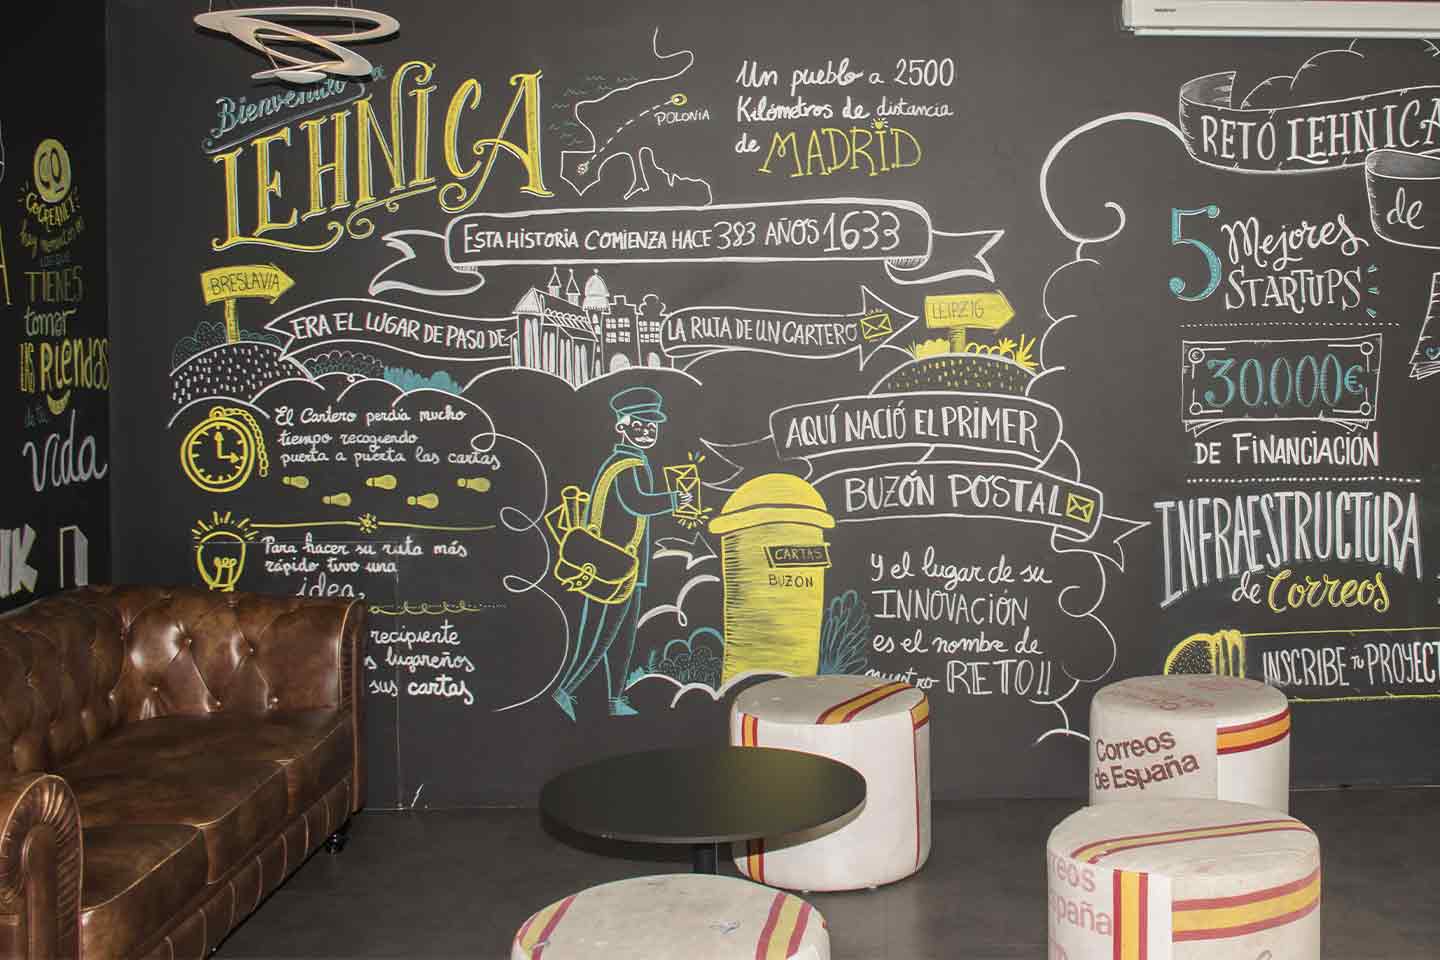 CoCREANET
hay momentos en
los que
TIENES
tomar
LAS RIENDAS
de tu
vida
Bienvenido a
LEHNICA
POLONIA
Un pueblo a 2500
Kilómetros de distancia
de MADRID
ESTA HISTORIA COMIENZA HACE 383 AÑOS 1633
BRESLAVIA
ERA EL LUGAR DE PASO DE
LA RUTA DE UN CARTERO
LEIPZIG
El Cartero perdía mucho
tiempo recogiendo
puerta a puerta las cartas
Para hacer su ruta más
rápido tuvo una
idea,
recipiente
lugareños
sus cartas
AQUÍ NACIÓ EL PRIMER
BUZÓN POSTAL
CARTAS
BUZÓN
Y el lugar de su
INNOVACIÓN
es el nombre de
nuestro RETO!!
RETO LEHNICA
de
5 Mejores
STARTUPS
30.000€
DE FINANCIACIÓN
INFRAESTRUCTURA
de Correos
INSCRIBE TU PROYECT
Correos
de España
reos
spaña